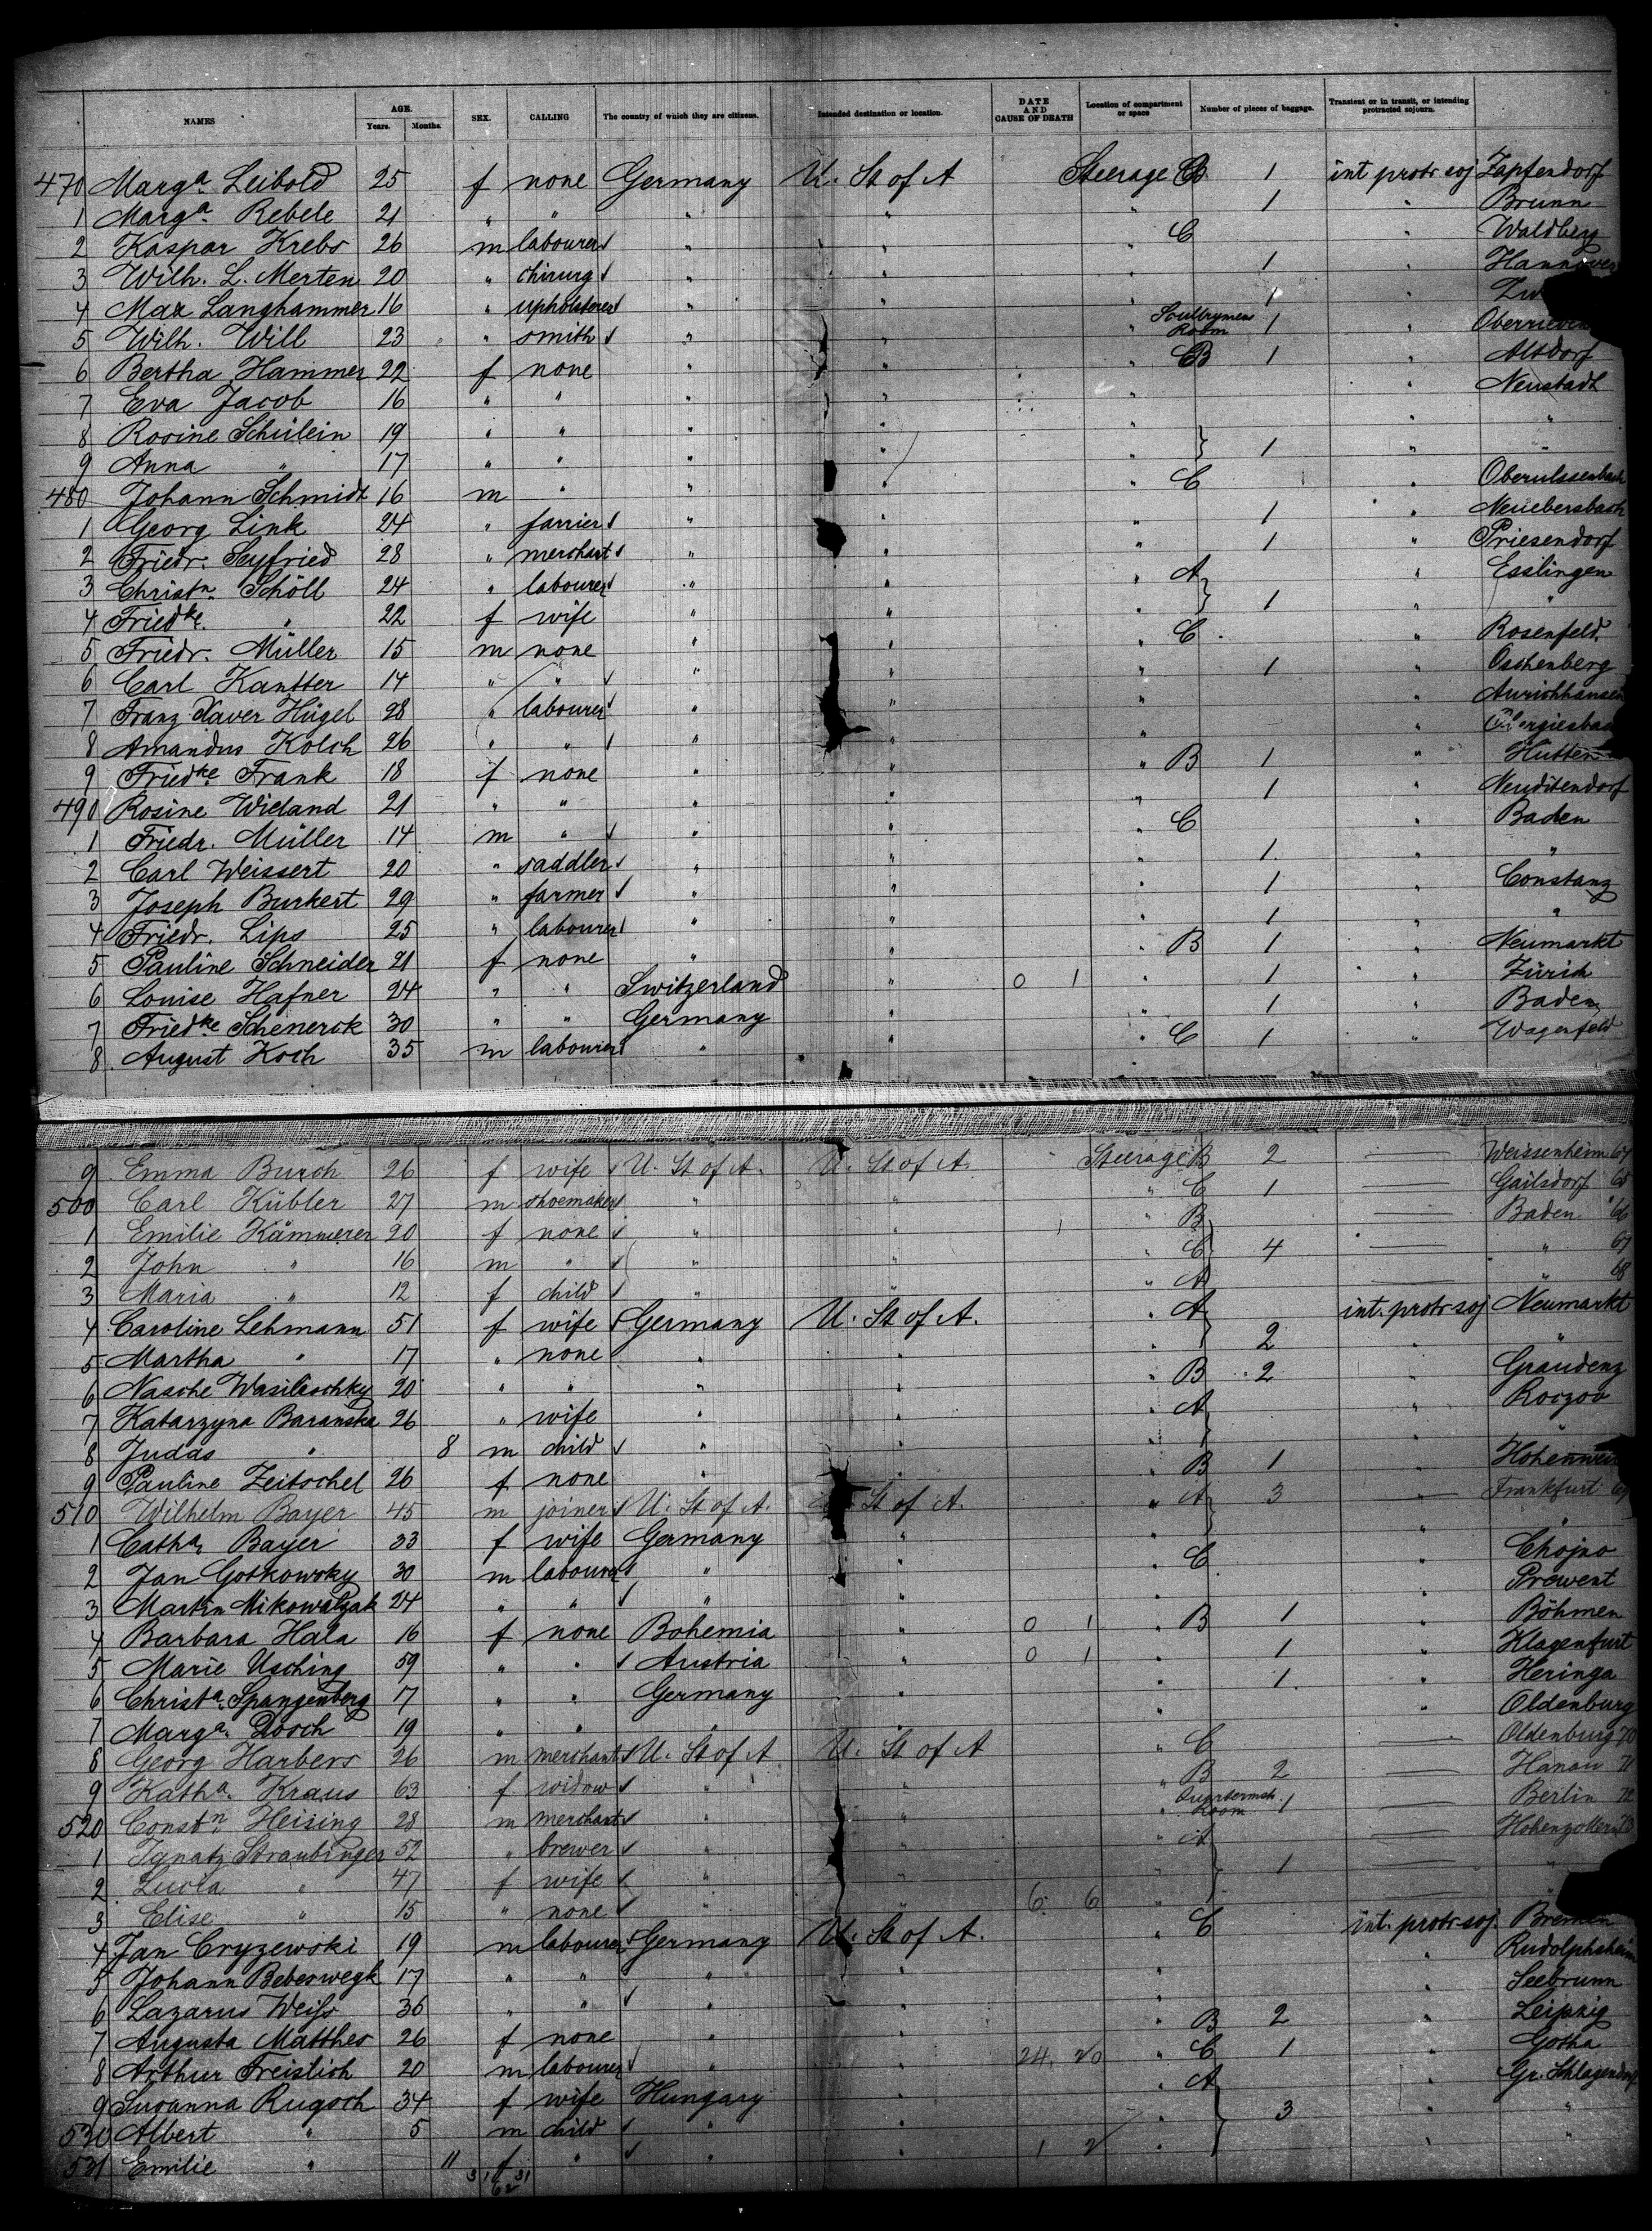 NAMES AGE. Years. Months. SEX. CALLING The country of which they are citizens. Intended destination or location. DATE AND CAUSE OF DEATH Location of compartment or space Number of pieces of baggage. Transient or in transit, or intending protracted sojourn.
470 Marga. Leibold 25 f none Germany U. St of A Steerage B 1 int protr soj Zapfendorf
1 Marga. Rebele 21 " " " " " 1 " Brunn
2 Kaspar Krebs 26 m labourer " " " C " Waldberg
3 Wilh. L. Merten 20 " chirurg " " " 1 " Hannover
4 Max Langhammer 16 " upholsterer " " " 1 "
5 Wilh. Will 23 " smith " " " Room 1 "
6 Bertha Hammer 22 f none " " " B 1 " Altdorf
7 Eva Jacob 16 " " " " " " Neustadt
8 Rosine Schülein 19 " " " " " " "
9 Anna " 17 " " " " " 1 " "
480 Johann Schmidt 16 m " " " " C "
1 Georg Link 24 " farrier " " " 1 " Neuebersbach
2 Friedr. Seyfried 28 " merchant " " " 1 " Priesendorf
3 Christn. Schöll 24 " labourer " " " A " Esslingen
4 Friedke. " 22 f wife " " " 1 " "
5 Friedr. Müller 15 m none " " " C " Rosenfeld
6 Carl Kantter 14 " " " " " 1 " Oschenberg
7 Franz Xaver Hügel 28 " labourer " " " "
8 Amandus Kolch 26 " " " " " "
9 Friedke Frank 18 f none " " " B 1 " Hütten
490 Rosine Wieland 21 " " " " " 1 " Neuditendorf
1 Friedr. Müller 14 m " " " " C " Baden
2 Carl Weissert 20 " saddler " " " 1 "
3 Joseph Burkert 29 " farmer " " " 1 " Constanz
4 Friedr. Lips 25 " labourer " " " 1 " "
5 Pauline Schneider 21 f none " " " B 1 " Neumarkt
6 Louise Hafner 24 " " Switzerland " 0 1 " 1 " Zürich
7 Friedke Schenerck 30 " " Germany " " 1 " Baden
8 August Koch 35 m labourer " " " C 1 " Wagenfeld
9 Emma Burch 26 f wife U. St of A. U. St of A. Steerage B 2 — Weissenheim 64
500 Carl Kübler 27 m shoemaker " " " C 1 — Gailsdorf 65
1 Emilie Kämmerer 20 f none " " " B — Baden 66
2 John " 16 m " " " " C 4 — " 67
3 Maria " 12 f child " " " A — " 68
4 Caroline Lehmann 51 f wife Germany U. St of A. " A int. protr soj Neumarkt
5 Martha " 17 " none " " " 2 " "
6 Nasche 20 " " " " " B 2 " Graudenz
7 Katarzyna Baranska 26 " wife " " " A " Roczov
8 Judas " 8 m child " " " " "
9 Pauline Zeitschel 26 f none " " " B 1 "
510 Wilhelm Bayer 45 m joiner U. St of A. St of A. " A 3 — Frankfurt 69
1 Catha. Bayer 33 f wife Germany " " " "
2 Jan Gotkowsky 30 m labourer " " " C " Chojno
3 Martin Mikowalzak 24 " " " " " " Prewent
4 Barbara Hala 16 f none Bohemia " 0 1 " B 1 " Böhmen
5 Marie Usching 59 " " Austria " 0 1 " 1 " Klagenfurt
6 Christa. Spangenberg 17 " " Germany " " 1 " Heringa
7 Marga. Dosch 19 " " " " " " Oldenburg
8 Georg Harbers 26 m merchant U. St of A U. St of A " C — Oldenburg 70
9 Katha. Kraus 63 f widow " " " B 2 — Hanau 71
520 Constn Heising 28 m merchant " " " Room 1 — Berlin 72
1 Ignatz Straubinger 52 " brewer " " " A — Hohenzollern 73
2 Lucla " 47 f wife " " " 1 — "
3 Elise " 15 " none " " 6 6 " — "
4 Jan Cryzewski 19 m labourer Germany U. St of A. " C int. protr soj. Bremen
5 Johann Bebeswegk 17 " " " " " " Rudolphsheim
6 Lazarus Weiss 36 " " " " " " Seebrunn
7 Augusta Matthes 26 f none " " " B 2 " Leipzig
8 Arthur Freislich 20 m labourer " " 24. 20 " C 1 " Gotha
9 Susanna Rugsch 34 f wife Hungary " " A " Gr. Schlagendorf
530 Albert " 5 m child " " " 3 " "
531 Emilie " 11 f " " " 1 2 " " "
31 31
62